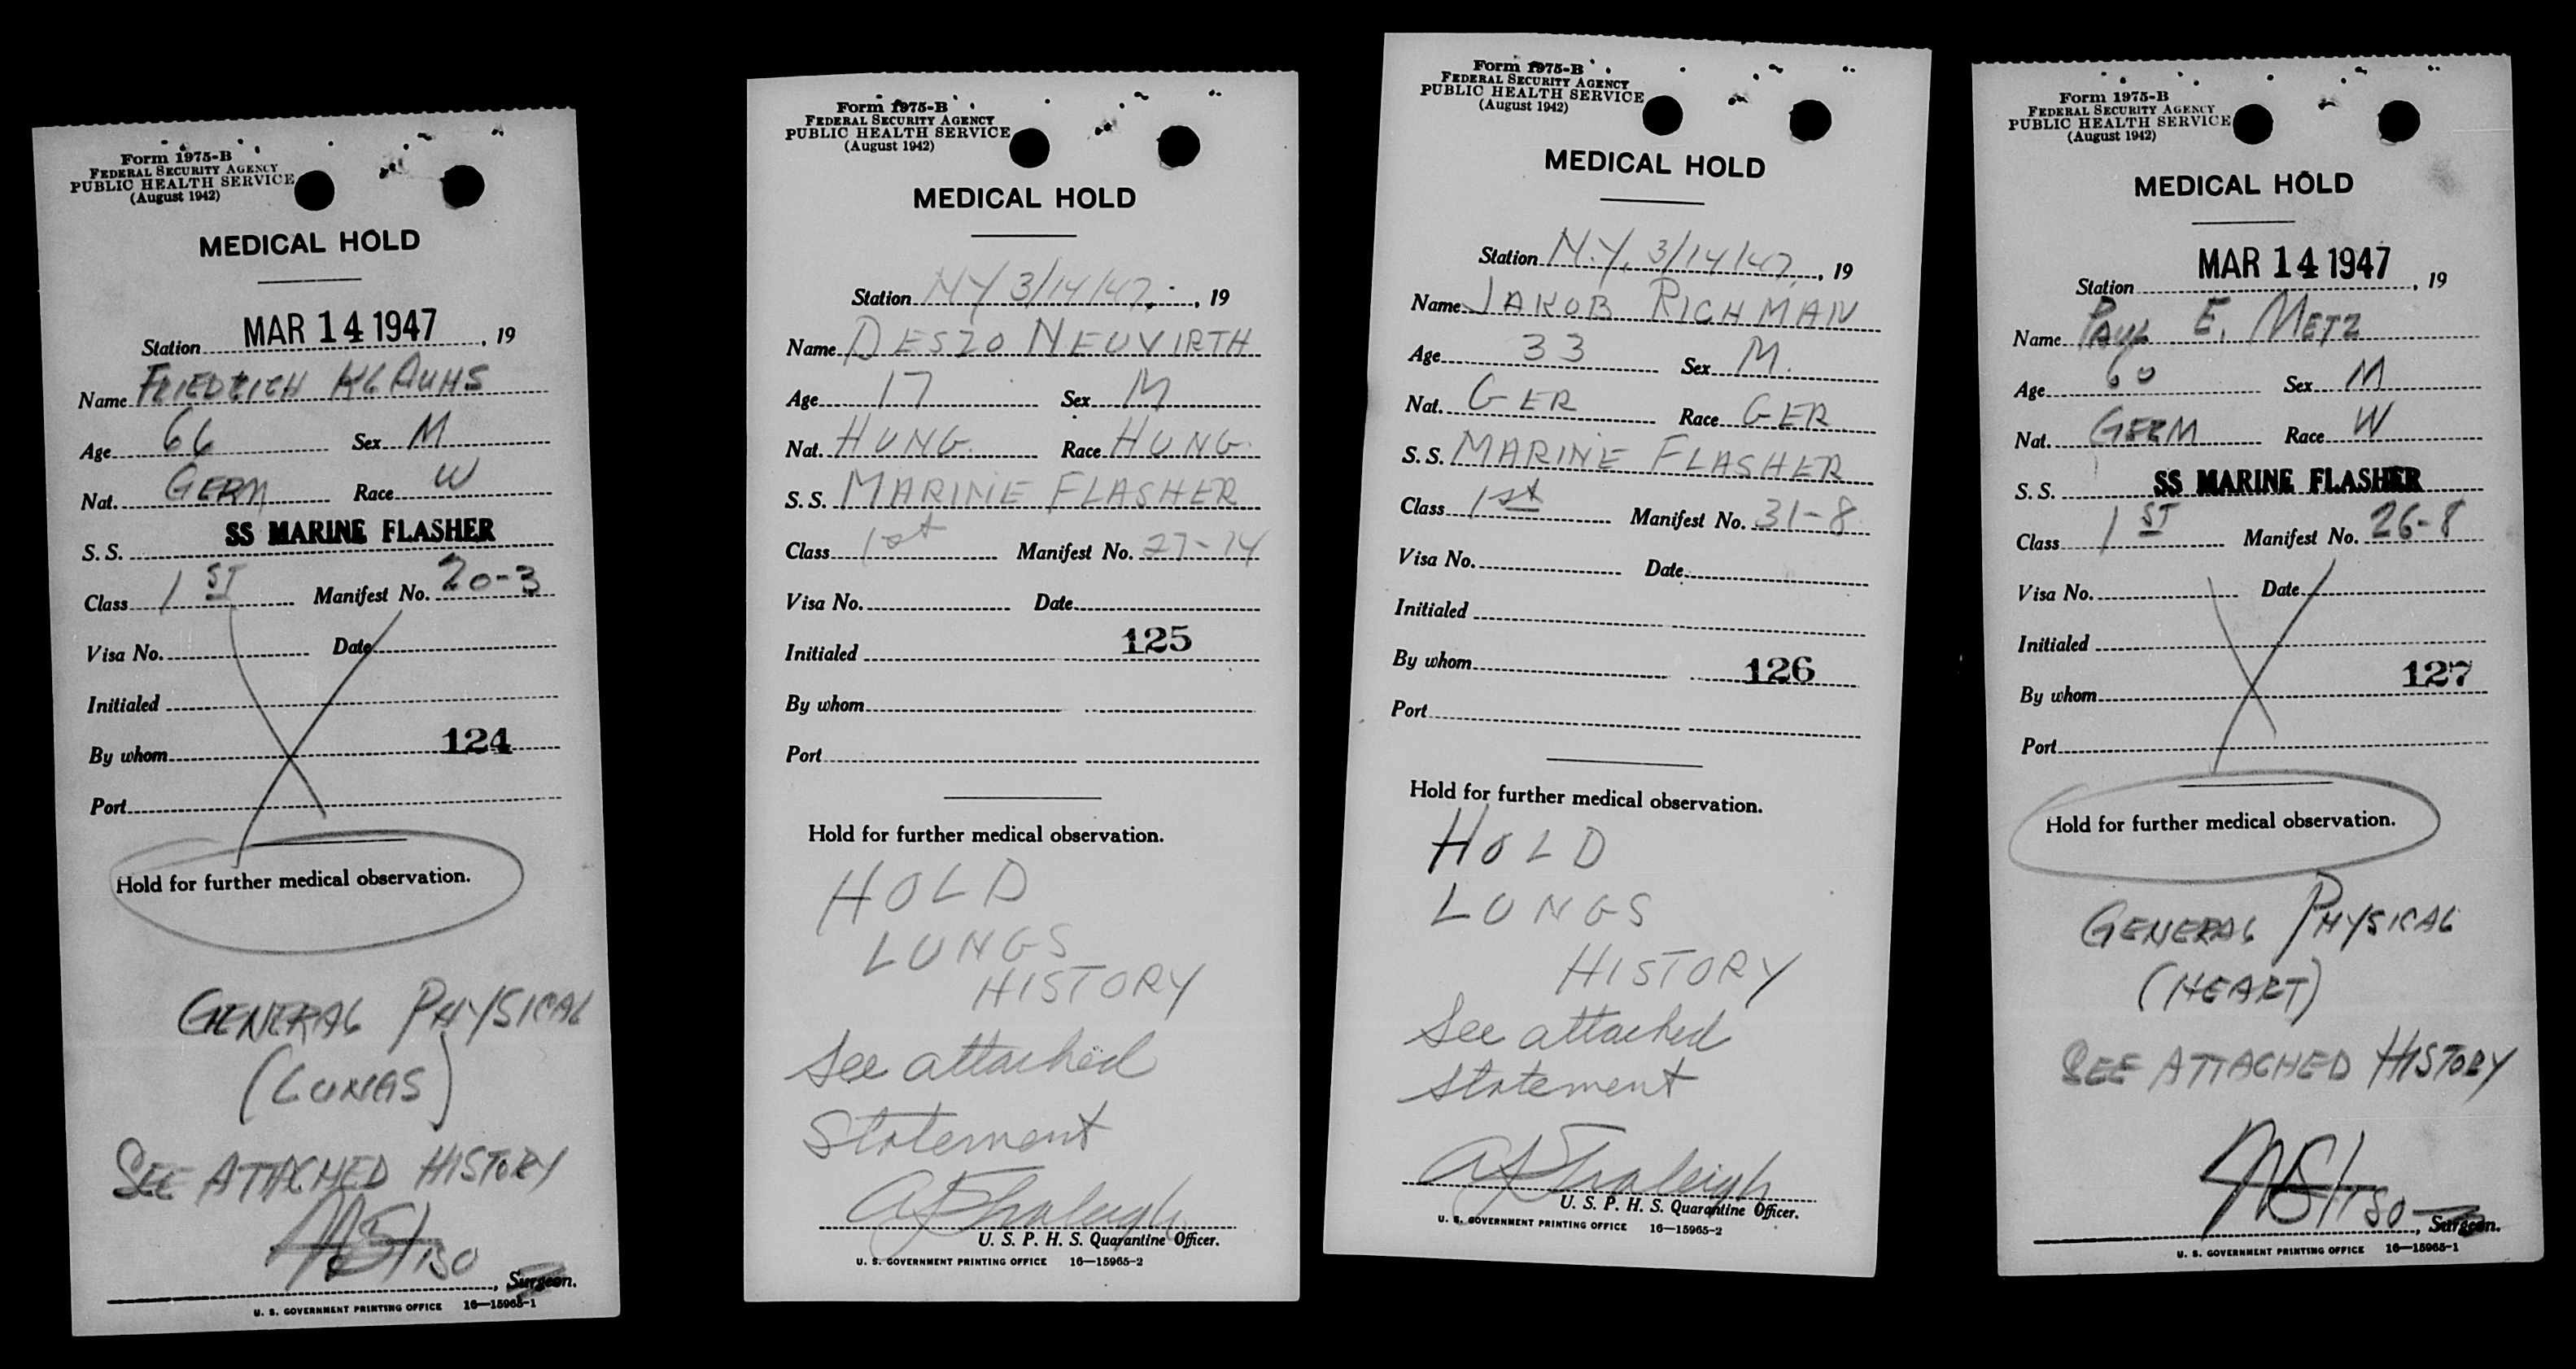 Form 1975-B
FEDERAL SECURITY AGENCY
PUBLIC HEALTH SERVICE
(August 1942)
MEDICAL HOLD
Station MAR 14 1947, 19
Name FRIEDRICH KLAUHS
Age 66 Sex M
Nat. GERM Race W
S. S. SS MARINE FLASHER
Class 1ST Manifest No. 20-3
Visa No. Date
Initialed
By whom 124
Port
Hold for further medical observation.
GENERAL PHYSICAL
(LUNGS)
SEE ATTACHED HISTORY
, Surgeon.
U. S. GOVERNMENT PRINTING OFFICE 16—15965-1
Form 1975-B
FEDERAL SECURITY AGENCY
PUBLIC HEALTH SERVICE
(August 1942)
MEDICAL HOLD
Station NY 3/14/47, 19
Name DESZO NEUVIRTH
Age 17 Sex M
Nat. HUNG. Race HUNG.
S. S. MARINE FLASHER
Class 1st Manifest No. 27-14
Visa No. Date
Initialed 125
By whom
Port
Hold for further medical observation.
HOLD
LUNGS
HISTORY
See attached
Statement
U. S. P. H. S. Quarantine Officer.
U. S. GOVERNMENT PRINTING OFFICE 16—15965-2
Form 1975-B
FEDERAL SECURITY AGENCY
PUBLIC HEALTH SERVICE
(August 1942)
MEDICAL HOLD
Station N.Y. 3/14/47, 19
Name JAKOB RICHMAN
Age 33 Sex M.
Nat. GER Race GER.
S. S. MARINE FLASHER
Class 1st Manifest No. 31-8
Visa No. Date
Initialed
By whom 126
Port
Hold for further medical observation.
HOLD
LUNGS
HISTORY
See attached
Statement
U. S. P. H. S. Quarantine Officer.
U. S. GOVERNMENT PRINTING OFFICE 16—15965-2
Form 1975-B
FEDERAL SECURITY AGENCY
PUBLIC HEALTH SERVICE
(August 1942)
MEDICAL HOLD
Station MAR 14 1947, 19
Name PAUL E. METZ
Age 60 Sex M
Nat. GERM Race W
S. S. SS MARINE FLASHER
Class 1ST Manifest No. 26-8
Visa No. Date
Initialed
By whom 127
Port
Hold for further medical observation.
GENERAL PHYSICAL
(HEART)
SEE ATTACHED HISTORY
, Surgeon.
U. S. GOVERNMENT PRINTING OFFICE 16—15965-1